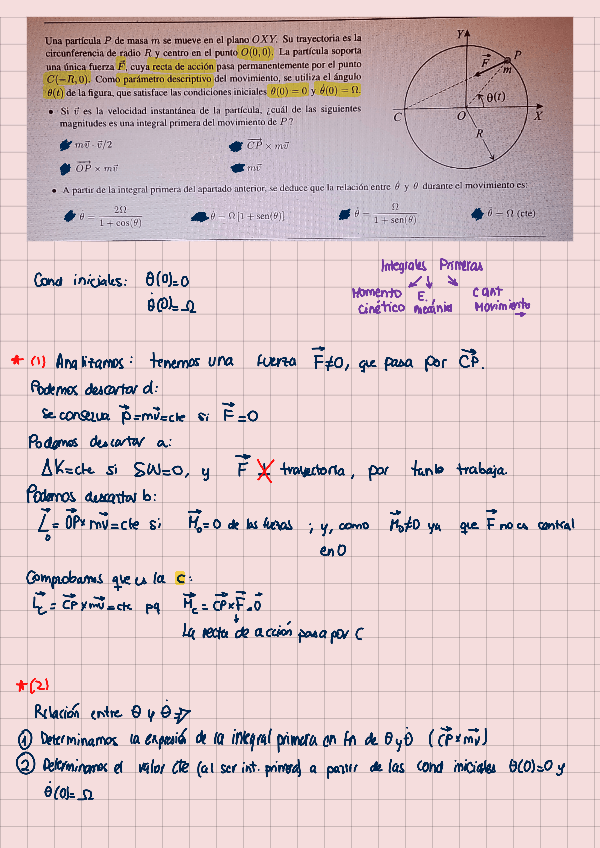 Una partícula P de masa m se mueve en el plano OXY. Su trayectoria es la
circunferencia de radio R y centro en el punto O(0,0). La partícula soporta
una única fuerza F⃗, cuya recta de acción pasa permanentemente por el punto
C(−R,0). Como parámetro descriptivo del movimiento, se utiliza el ángulo
θ(t) de la figura, que satisface las condiciones iniciales θ(0) = 0 y θ̇(0) = Ω.
• Si v⃗ es la velocidad instantánea de la partícula, ¿cuál de las siguientes
magnitudes es una integral primera del movimiento de P?
mv⃗ · v⃗/2
CP⃗ × mv⃗
OP⃗ × mv⃗
mv⃗
Y
P
F⃗
m
θ(t)
C
O
X
R
• A partir de la integral primera del apartado anterior, se deduce que la relación entre θ̇ y θ durante el movimiento es:
θ̇ = 2Ω / (1 + cos(θ))
θ̇ = Ω [1 + sen(θ)]
θ̇ = Ω / (1 + sen(θ))
θ̇ = Ω (cte)
Cond iniciales: θ(0)=0
θ̇(0)=Ω
Integrales Primeras
Momento Cinético
E. mecánica
Cant Movimiento
* (1) Analizamos: tenemos una fuerza F⃗≠0, que pasa por CP⃗.
Podemos descartar d:
se conserva p⃗=mv⃗=cte si F⃗=0
Podemos descartar a:
ΔK=cte si ΣW=0, y F⃗ ⊥ trayectoria, por tanto trabaja.
Podemos descartar b:
L⃗o = OP⃗×mv⃗=cte si M⃗o=0 de las fuerzas ; y, como M⃗o≠0 ya que F⃗ no es central
en O
Comprobamos que es la c:
L⃗c = CP⃗×mv⃗=cte pq M⃗c = CP⃗×F⃗=0⃗
La recta de acción pasa por C
* (2)
Relación entre θ y θ̇ ⇒
① Determinamos la expresión de la integral primera en fn de θ y θ̇ (CP⃗×mv⃗)
② Determinamos el valor cte (al ser int. primera) a partir de las cond iniciales θ(0)=0 y
θ̇(0)=Ω